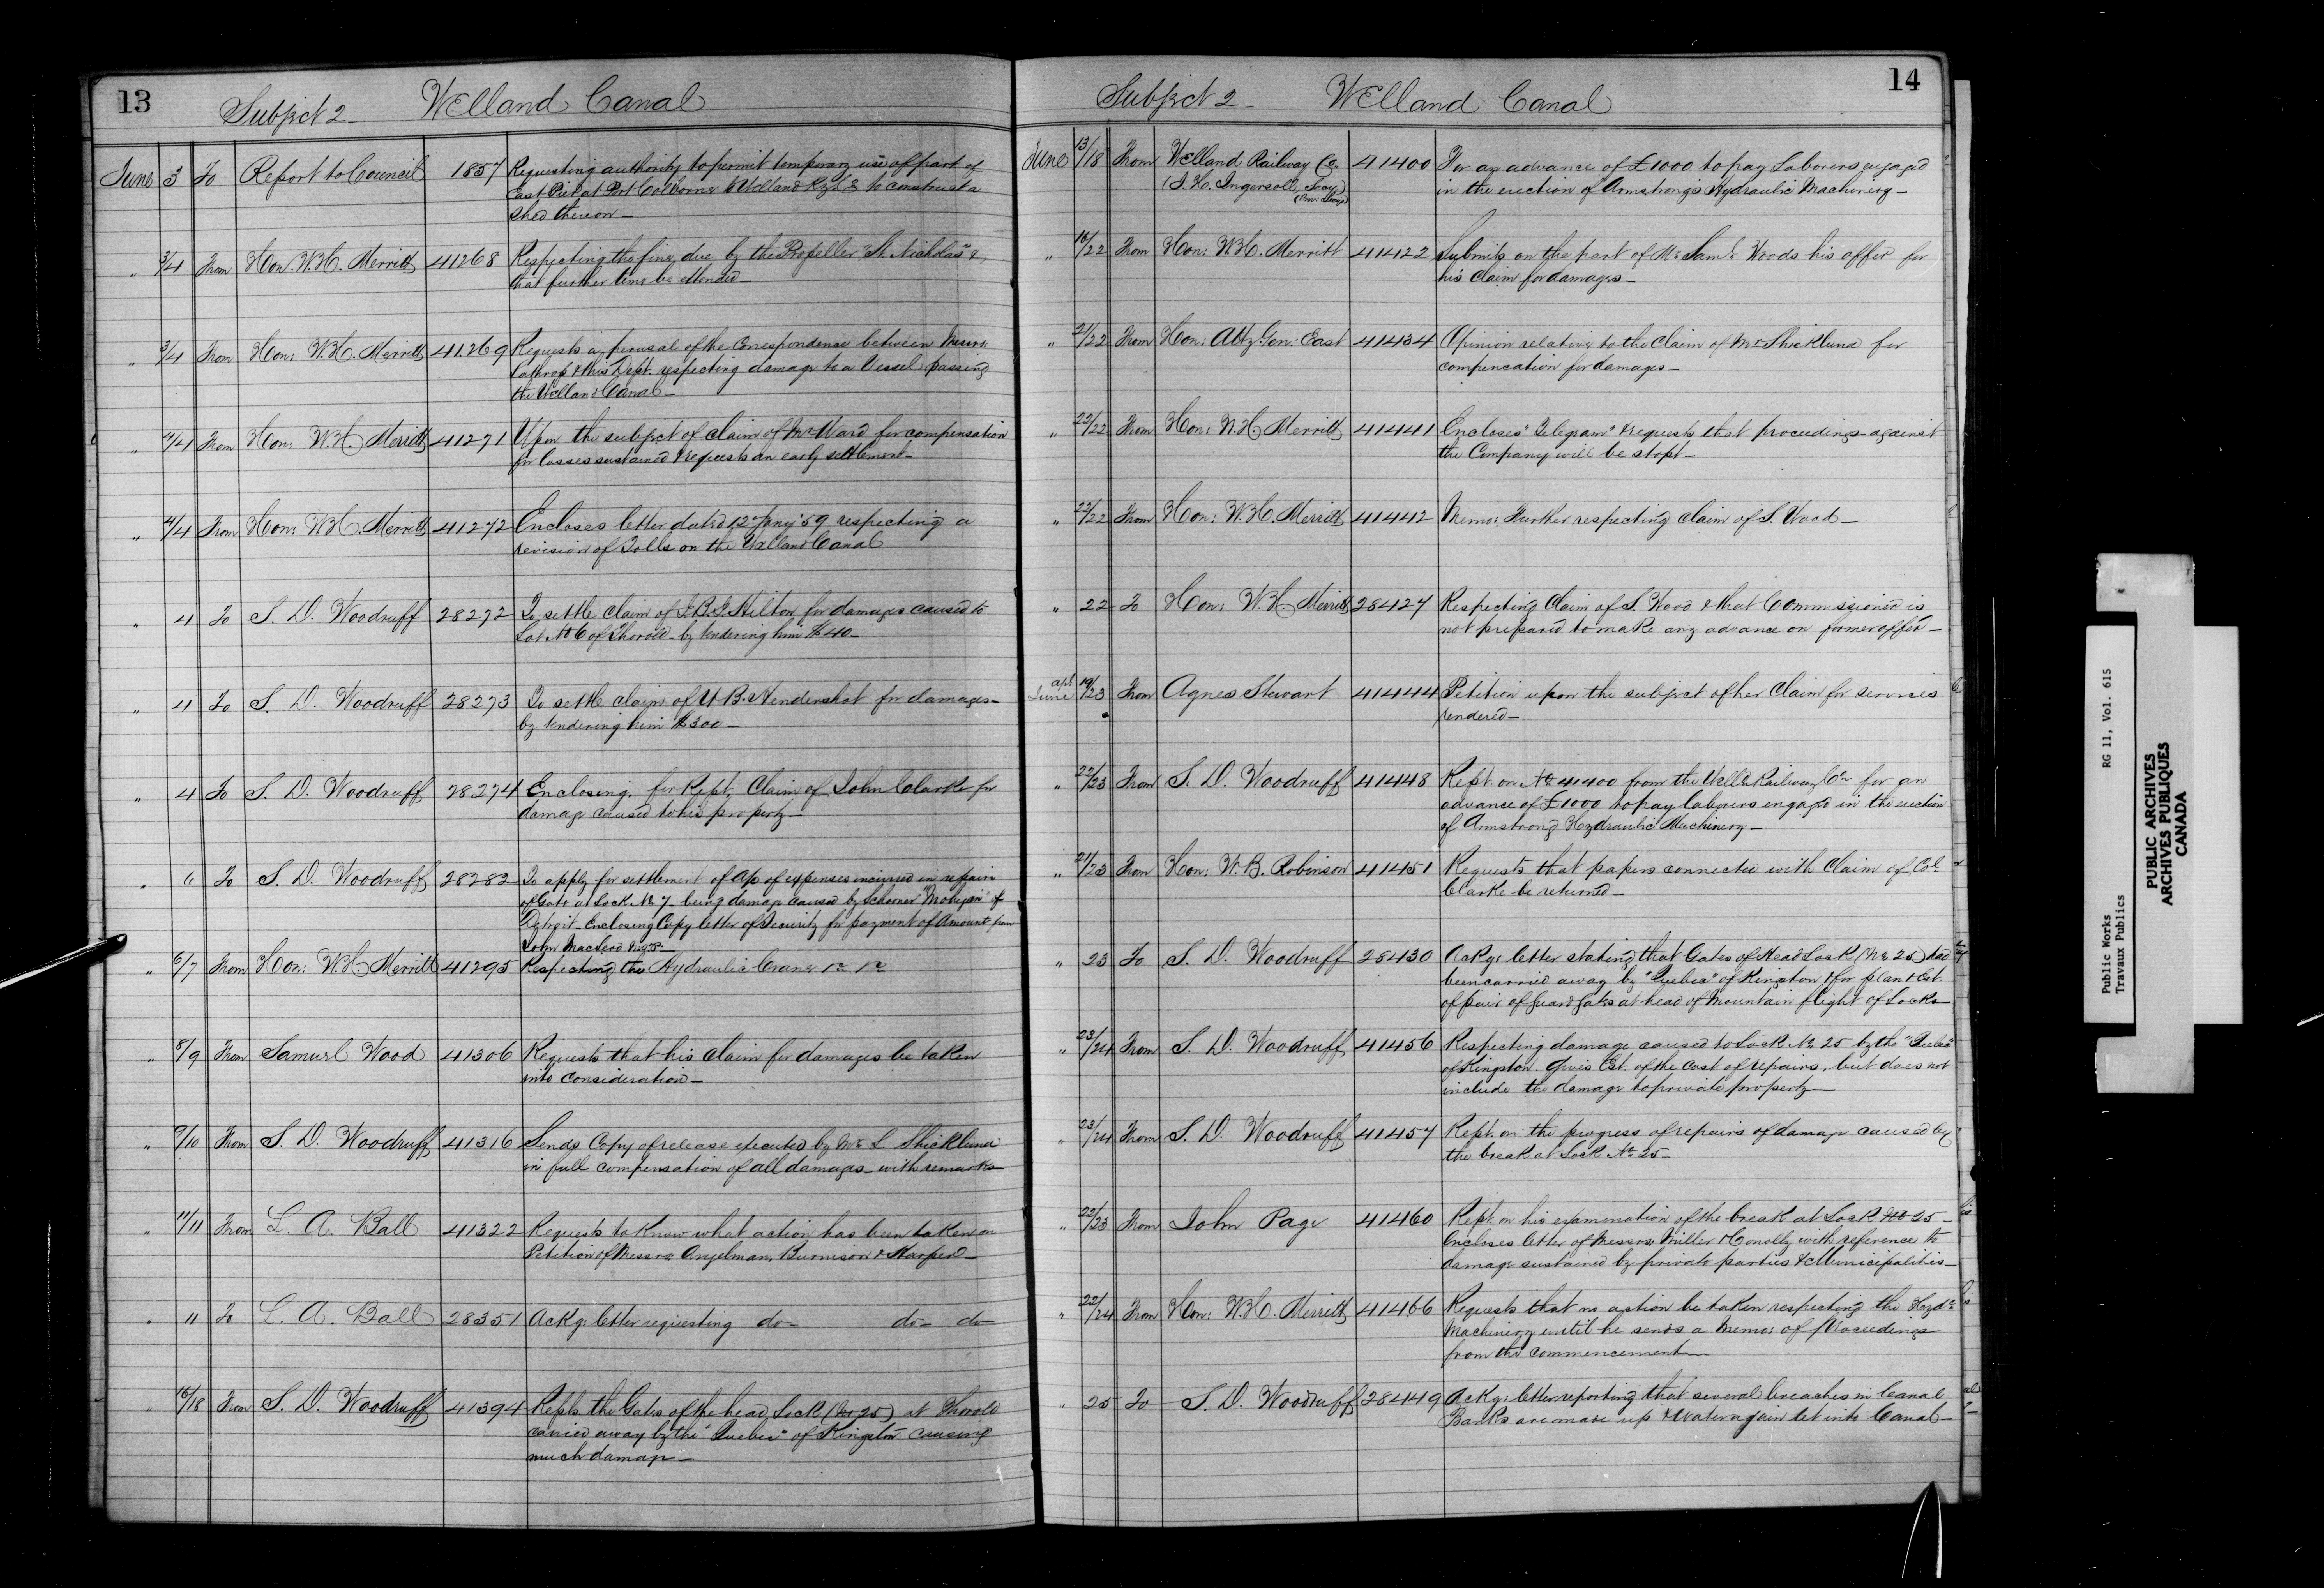 13
Subject 2 Welland Canal
June 3 To Report to Council 1857 Requesting authority to permit temporary use of part of
East Pier at Port Colborne to Welland Ry & to construct a
shed thereon
" 3/4 From Hon. W.H. Merritt 41268 Respecting the fine due by the Propeller "St. Nicholas" &
that further time be extended
" 3/4 From Hon: W.H. Merritt 41269 Requests a perusal of the Correspondence between Messrs:
& this Dept. respecting damage to a Vessel passing
the Welland Canal
" 4/4 From Hon: W.H. Merritt 41271 Upon the subject of claim of Mr Ward for compensation
for losses sustained & requests an early settlement
" 4/4 From Hon: W.H. Merritt 41272 Encloses letter dated 12 Jany '59 respecting a
revision of Tolls on the Welland Canal
" 4 To S. D. Woodruff 28272 To settle claim of Hilton for damages caused to
Lot No 6 of Thorold by tendering him $40
" 4 To S. D. Woodruff 28273 To settle claim of B. Hendershot for damages
by tendering him $300
" 4 To S. D. Woodruff 28274 Enclosing, for Rept, Claim of John Clarke for
damage caused to his property
" 6 To S. D. Woodruff 28282 To apply for settlement of a/c of expenses incurred in repairs
of Gate at Lock No 7 being damage caused by Schooner "Mohegan" of
Detroit Enclosing Copy letter of Security for payment of Amount from
John MacLeod
" 6/7 From Hon: W.H. Merritt 41295 Respecting the Hydraulic Cranes
" 8/9 From Samuel Wood 41306 Requests that his claim for damages be taken
into consideration
" 9/10 From S. D. Woodruff 41316 Sends Copy of release executed by Mr L. Shickluna
in full compensation of all damages with remarks
" 11/11 From L. A. Ball 41322 Requests to know what action has been taken on
Petition of Messrs Angelman, Burnison & Harper
" 11 To L. A. Ball 28351 Ackg letter requesting do do do
" 16/18 From S. D. Woodruff 41394 Repts. the Gates of the head Lock (No 25) at Thorold
carried away by the "Quebec" of Kingston causing
much damage
14
Subject 2 Welland Canal
June 13/18 From Welland Railway Co. 41400 For an advance of £1000 to pay Laborers engaged
(I. H. Ingersoll, Secy) in the erection of Armstrong's Hydraulic Machinery
" 16/22 From Hon: W.H. Merritt 41422 Submits on the part of Mr Saml Woods his offer for
his Claim for damages
" 21/22 From Hon: Atty Gen: East 41434 Opinion relative to the Claim of Mr Shickluna for
compensation for damages
" 22/22 From Hon: W.H Merritt 41441 Encloses "Telegram" & requests that proceedings against
the Company will be stopt
" 22/22 From Hon: W.H. Merritt 41442 Memo: Further respecting claim of S. Wood
" 22 To Hon: W.H Merritt 28427 Respecting Claim of S. Wood & that Commissioner is
not prepared to make any advance on former offer
apl 19
June 23 From Agnes Stewart 41444 Petition upon the subject of her Claim for services
rendered
" 22/23 From S. D. Woodruff 41448 Rept. on No 41400 from the Welld Railway Co for an
advance of £1000 to pay laborers engaged in the erection
of Armstrong Hydraulic Machinery
" 21/23 From Hon: W.B. Robinson 41451 Requests that papers connected with Claim of Col
Clarke be returned
" 23 To S. D. Woodruff 28430 Ackg: letter stating that Gates of Head Lock (No 25) had
been carried away by "Quebec" of Kingston & for plan & Est.
of pair of Guard Gates at head of Mountain flight of Locks
" 23/24 From S. D. Woodruff 41456 Respecting damage caused to Lock No 25 by the "Quebec"
of Kingston. Gives Est. of the Cost of repairs, but does not
include the damage to private property
" 23/24 From S. D. Woodruff 41457 Rept. on the progress of repairs of damage caused by
the break at Lock No 25
" 22/23 From John Page 41460 Rept. on his examination of the break at Lock No 25
Encloses letter of Messrs Miller & Conolly with reference to
damage sustained by private parties & Municipalities
" 22/24 From Hon: W.H. Merritt 41466 Requests that no action be taken respecting the Hydc
Machinery until he sends a Memo: of Proceedings
from the commencement
" 25 To S. D. Woodruff 28449 Ackg: letter reporting that several breaches in Canal
Banks are made up & water again let into Canal
Public Works RG 11, Vol. 615
Travaux Publics
PUBLIC ARCHIVES
ARCHIVES PUBLIQUES
CANADA